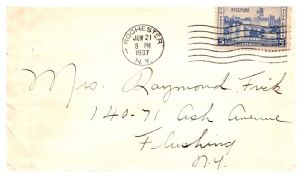 ROCHESTER
JUN 21
8 PM
1937
N.Y.
Mrs. Raymond Frick
140-71 Ash Avenue
Flushing
N.Y.